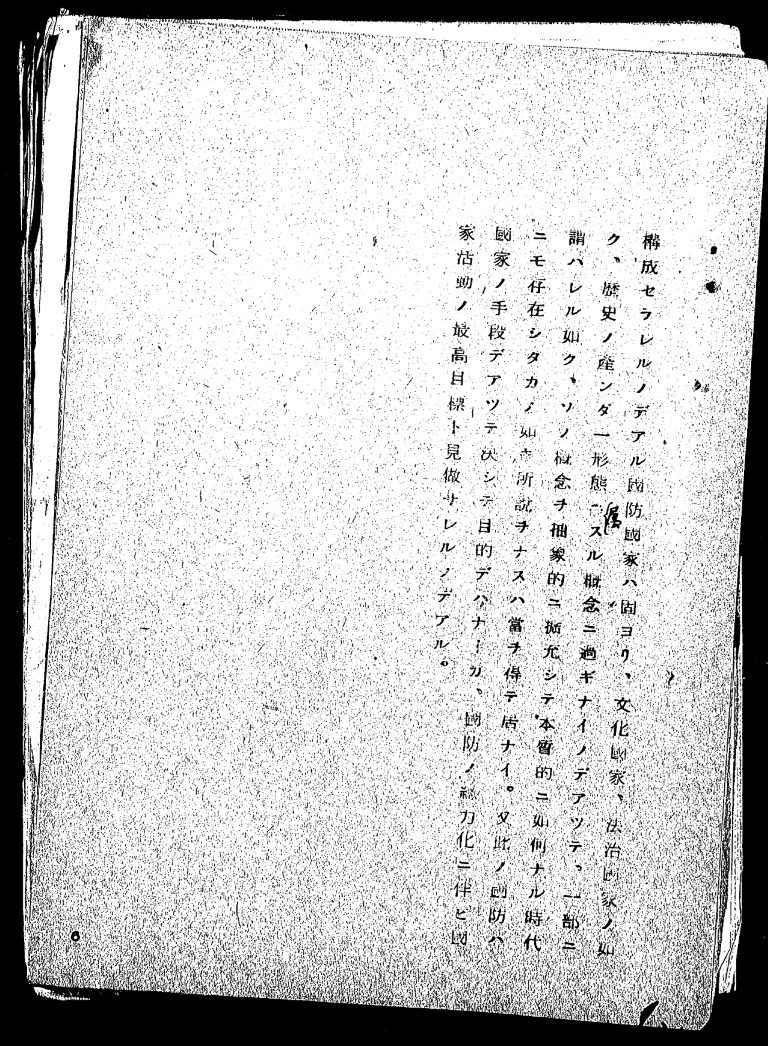 構成セラレルノデアル國防國家ハ固ヨリ、文化國家、法治國家ノ如
ク、歴史ノ産ンダ一形態ニ属スル概念ニ過ギナイノデアツテ、一部ニ
謂ハレル如ク、ソノ概念ヲ抽象的ニ拡充シテ本質的ニ如何ナル時代
ニモ存在シタカノ如キ所説ヲナスハ當ヲ得テ居ナイ。又此ノ國防ハ
國家ノ手段デアツテ決シテ目的デハナイガ、國防ノ総力化ニ伴ヒ國
家活動ノ最高目標ト見做サレルノデアル。
6